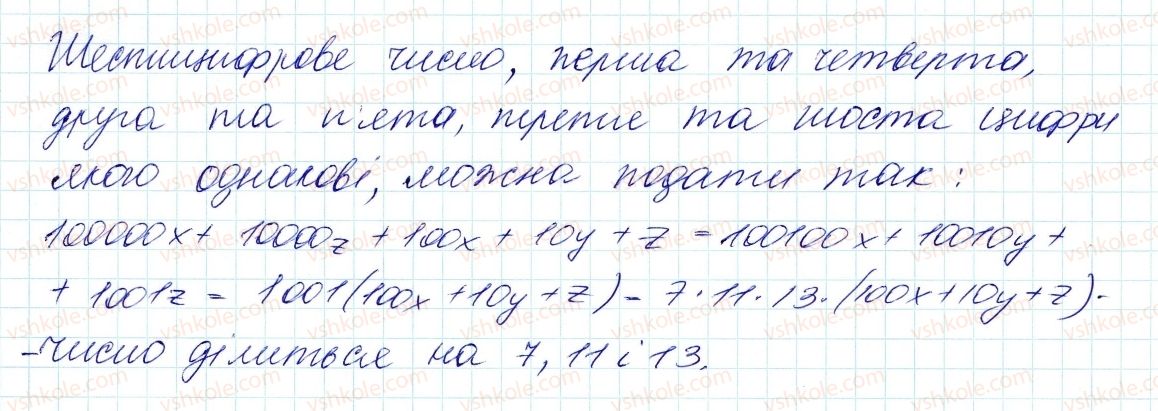 Шестицифрове число, перша та четверта,
друга та п'ята, третє та шоста цифри
якого однакові, можна подати так:
100000x + 10000z + 100x + 10y + z = 100100x + 10010y +
+ 1001z = 1001(100x + 10y + z) - 7·11·13·(100x + 10y + z) -
- число ділиться на 7, 11 і 13.